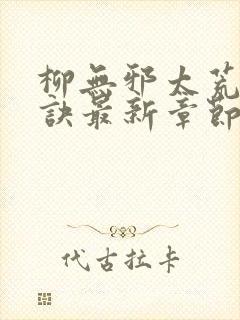 柳無邪太荒
訣最新章節
代古拉卡